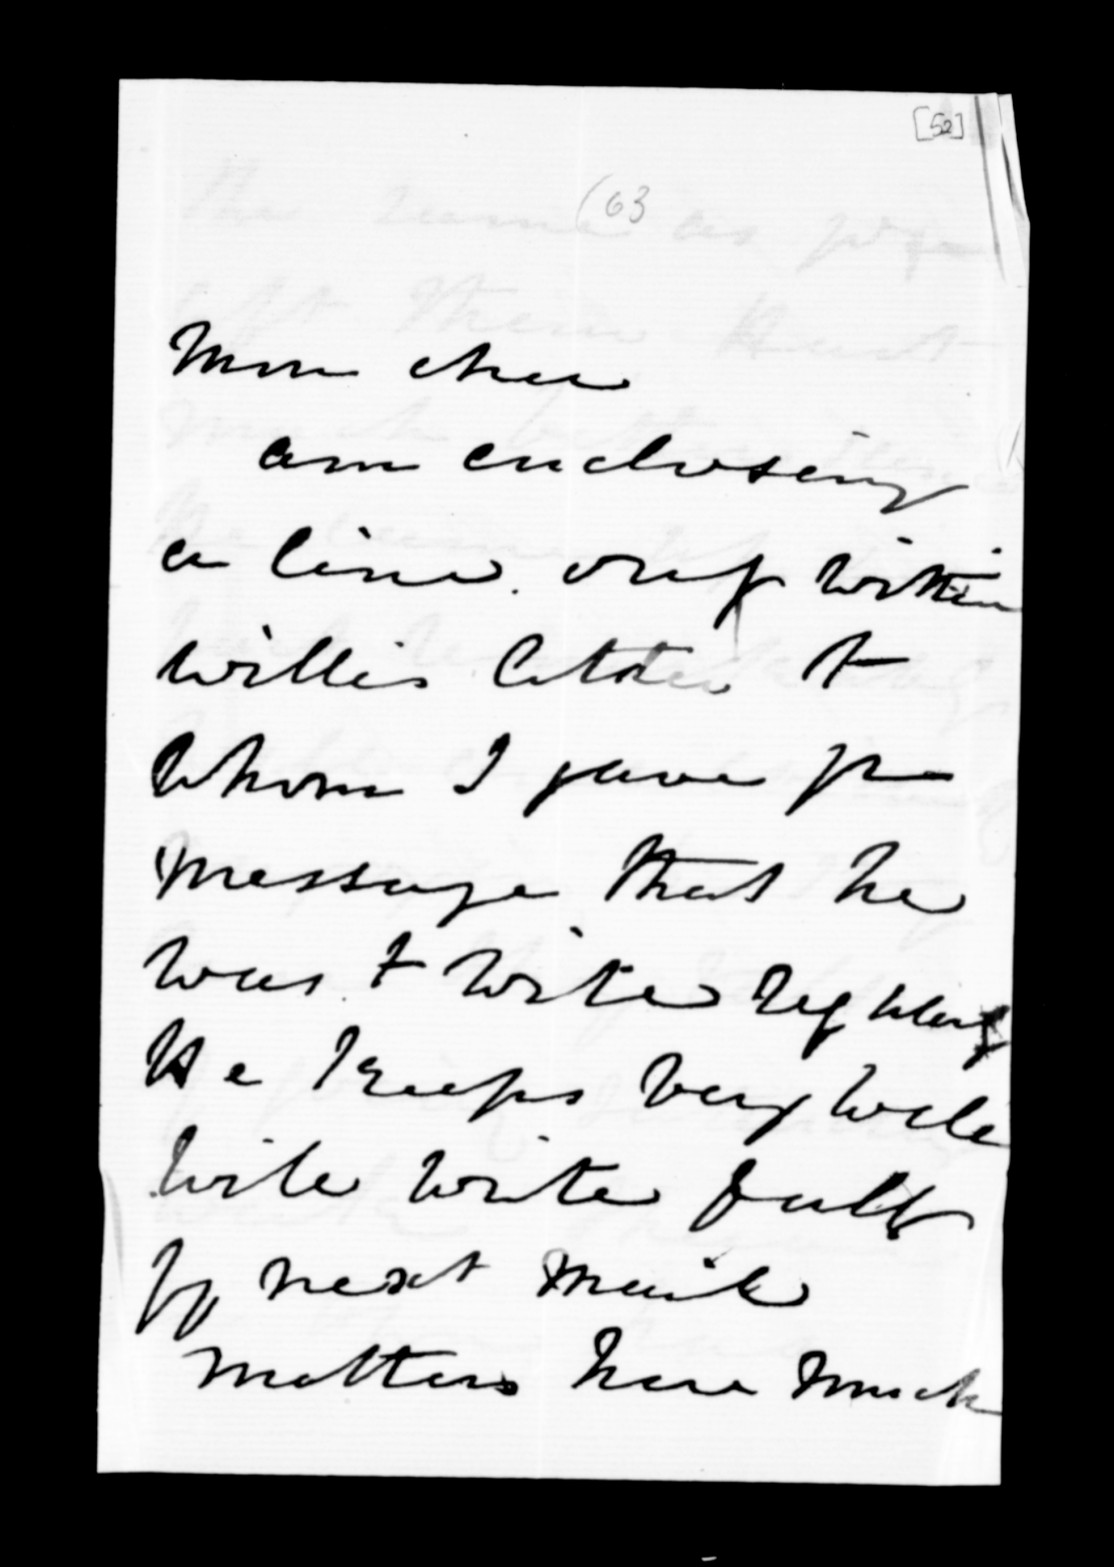 [52]
(63
Mon cher
am enclosing
a line. only within
Willis letter to
whom I gave yr
message that he
was to write regularly
He keeps very well
will write fully
by next mail
Matters here much